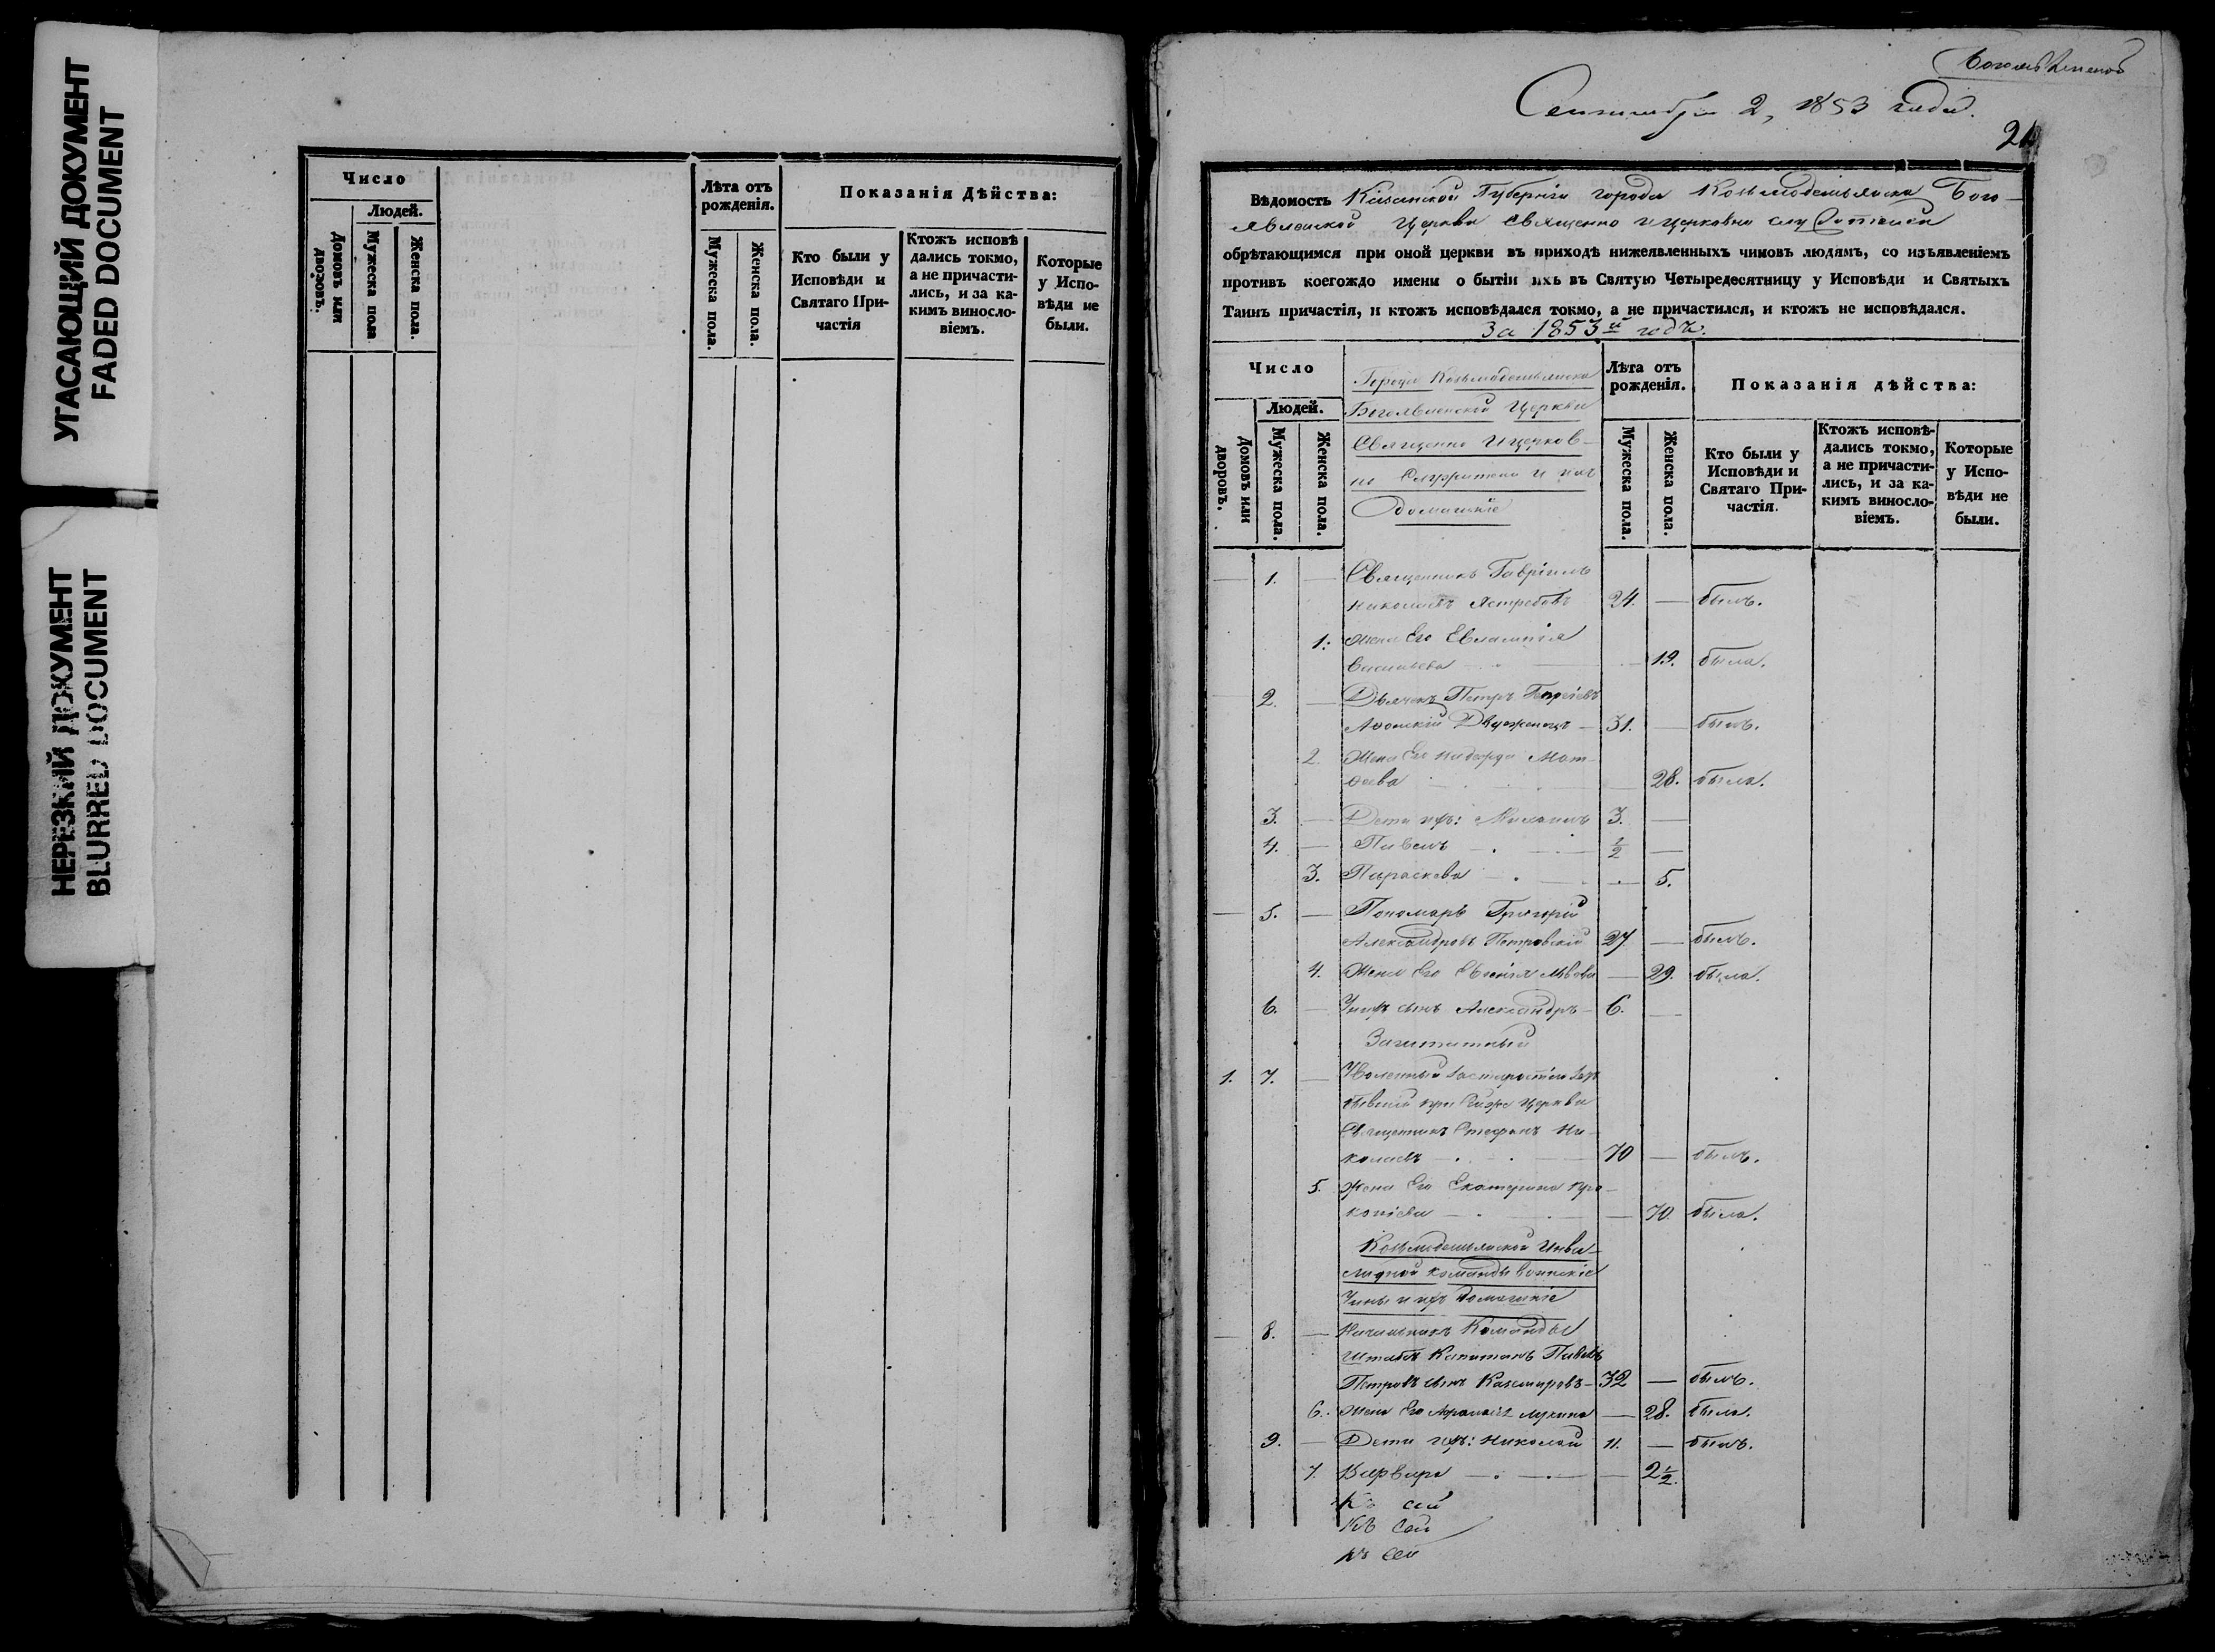 УГАСАЮЩИЙ ДОКУМЕНТ
FADED DOCUMENT
НЕРЕЗКИЙ ДОКУМЕНТ
BLURRED DOCUMENT
Число
Людей.
Домовъ или дворовъ.
Мужеска пола
Женска пола.
Лѣта отъ
рожденія.
Мужеска пола.
Женска пола.
Показанія Дѣйства:
Кто были у
Исповѣди и
Святаго При-
частія
Ктожъ исповѣ
дались токмо,
а не причасти-
лись, и за ка-
кимъ виносло-
віемъ.
Которые
у Испо-
вѣди не
были.
Сентября 2, 1853 года.
Вѣдомость Казанской Губерніи города Козьмодемьянска Бого-
явленской Церкви священно и церковно
обрѣтающимся при оной церкви въ приходѣ нижеявленныхъ чиновъ людямъ, со изъявленіемъ
противъ коегождо имени о бытіи ихъ въ Святую Четыредесятницу у Исповѣди и Святыхъ
Таинъ причастія, и ктожъ исповѣдался токмо, а не причастился, и ктожъ не исповѣдался.
За 1853й годъ.
Число
Людей.
Домовъ или дворовъ.
Мужеска пола.
Женска пола.
Города Козьмодемьянска
Богоявленской Церкви
Священно и церков-
но и ихъ
домашніе
Лѣта отъ
рожденія.
Мужеска пола.
Женска пола.
Показанія дѣйства:
Кто были у
Исповѣди и
Святаго При-
частія.
Ктожъ исповѣ-
дались токмо,
а не причасти-
лись, и за ка-
кимъ винosло-
віемъ.
Которые
у Испо-
вѣди не
были.
1. Священникъ Гавріилъ
Николаевъ Ястребовъ 24. был.
1. Жена Его Евлампія
Васильева 19. была.
2. Дьячекъ Петръ Георгіевъ
31. былъ.
2. Жена Его Надежда Мат-
ѳеева 28. была.
3. Дети ихъ: Михаилъ 3.
4. Павелъ ½
3. Параскева 5.
5. Пономарь Григорій
Александровъ Петровскій 27 былъ.
4. Жена Его Евгенія Львова 29. была.
6. У нихъ сынъ Александръ 6.
Заштатный
1. 7. Уволенный
бывшій при сей же церкви
Священникъ Стефанъ Ни-
колаевъ 70 былъ.
5. Жена Его Екатерина Про-
копіева 70. была.
Козьмодемьянской Инва-
лидной команды воинскіе
Чины и ихъ домашніе
8. Начальникъ Команды
Штабсъ Капитанъ Павелъ
Петровъ сынъ Каземировъ 32 былъ.
6. Жена Его Лукина 28. была.
9. Дети ихъ: Николай 11. былъ.
7. Варвара 2½.
Къ сей
Къ сей
къ сей